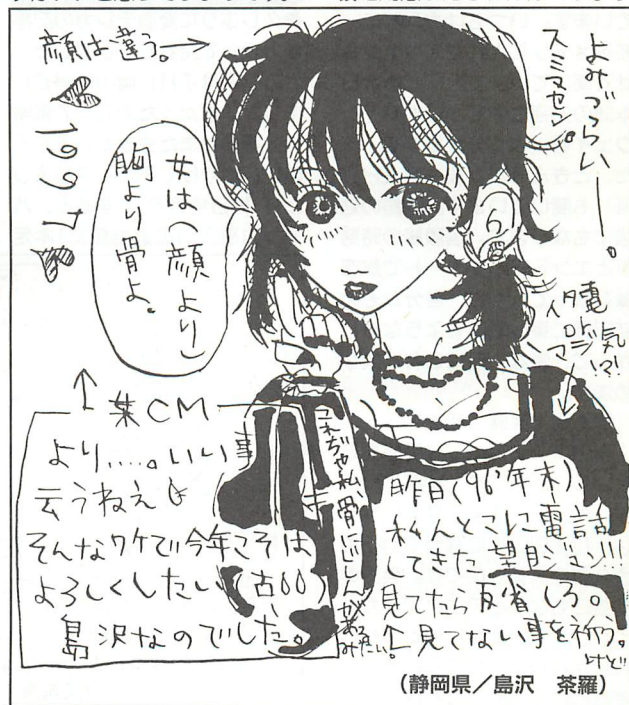 顔は違う。→
1997
女は 顔より
胸より骨よ。
よみづらいー。
スミマセン。
↑某CM
より....。いい事
云うねえ
そんなワケで今年こそは
よろしくしたい(古66)
島沢なのでした。
これぢゃ私、骨にじしんがあるみたい。
昨日(96'年末)、
私んとこに電話
してきた望月ジャン!!!
見てたら反省しろ。
見てない事を祈る。
けど
(静岡県/島沢 茶羅)